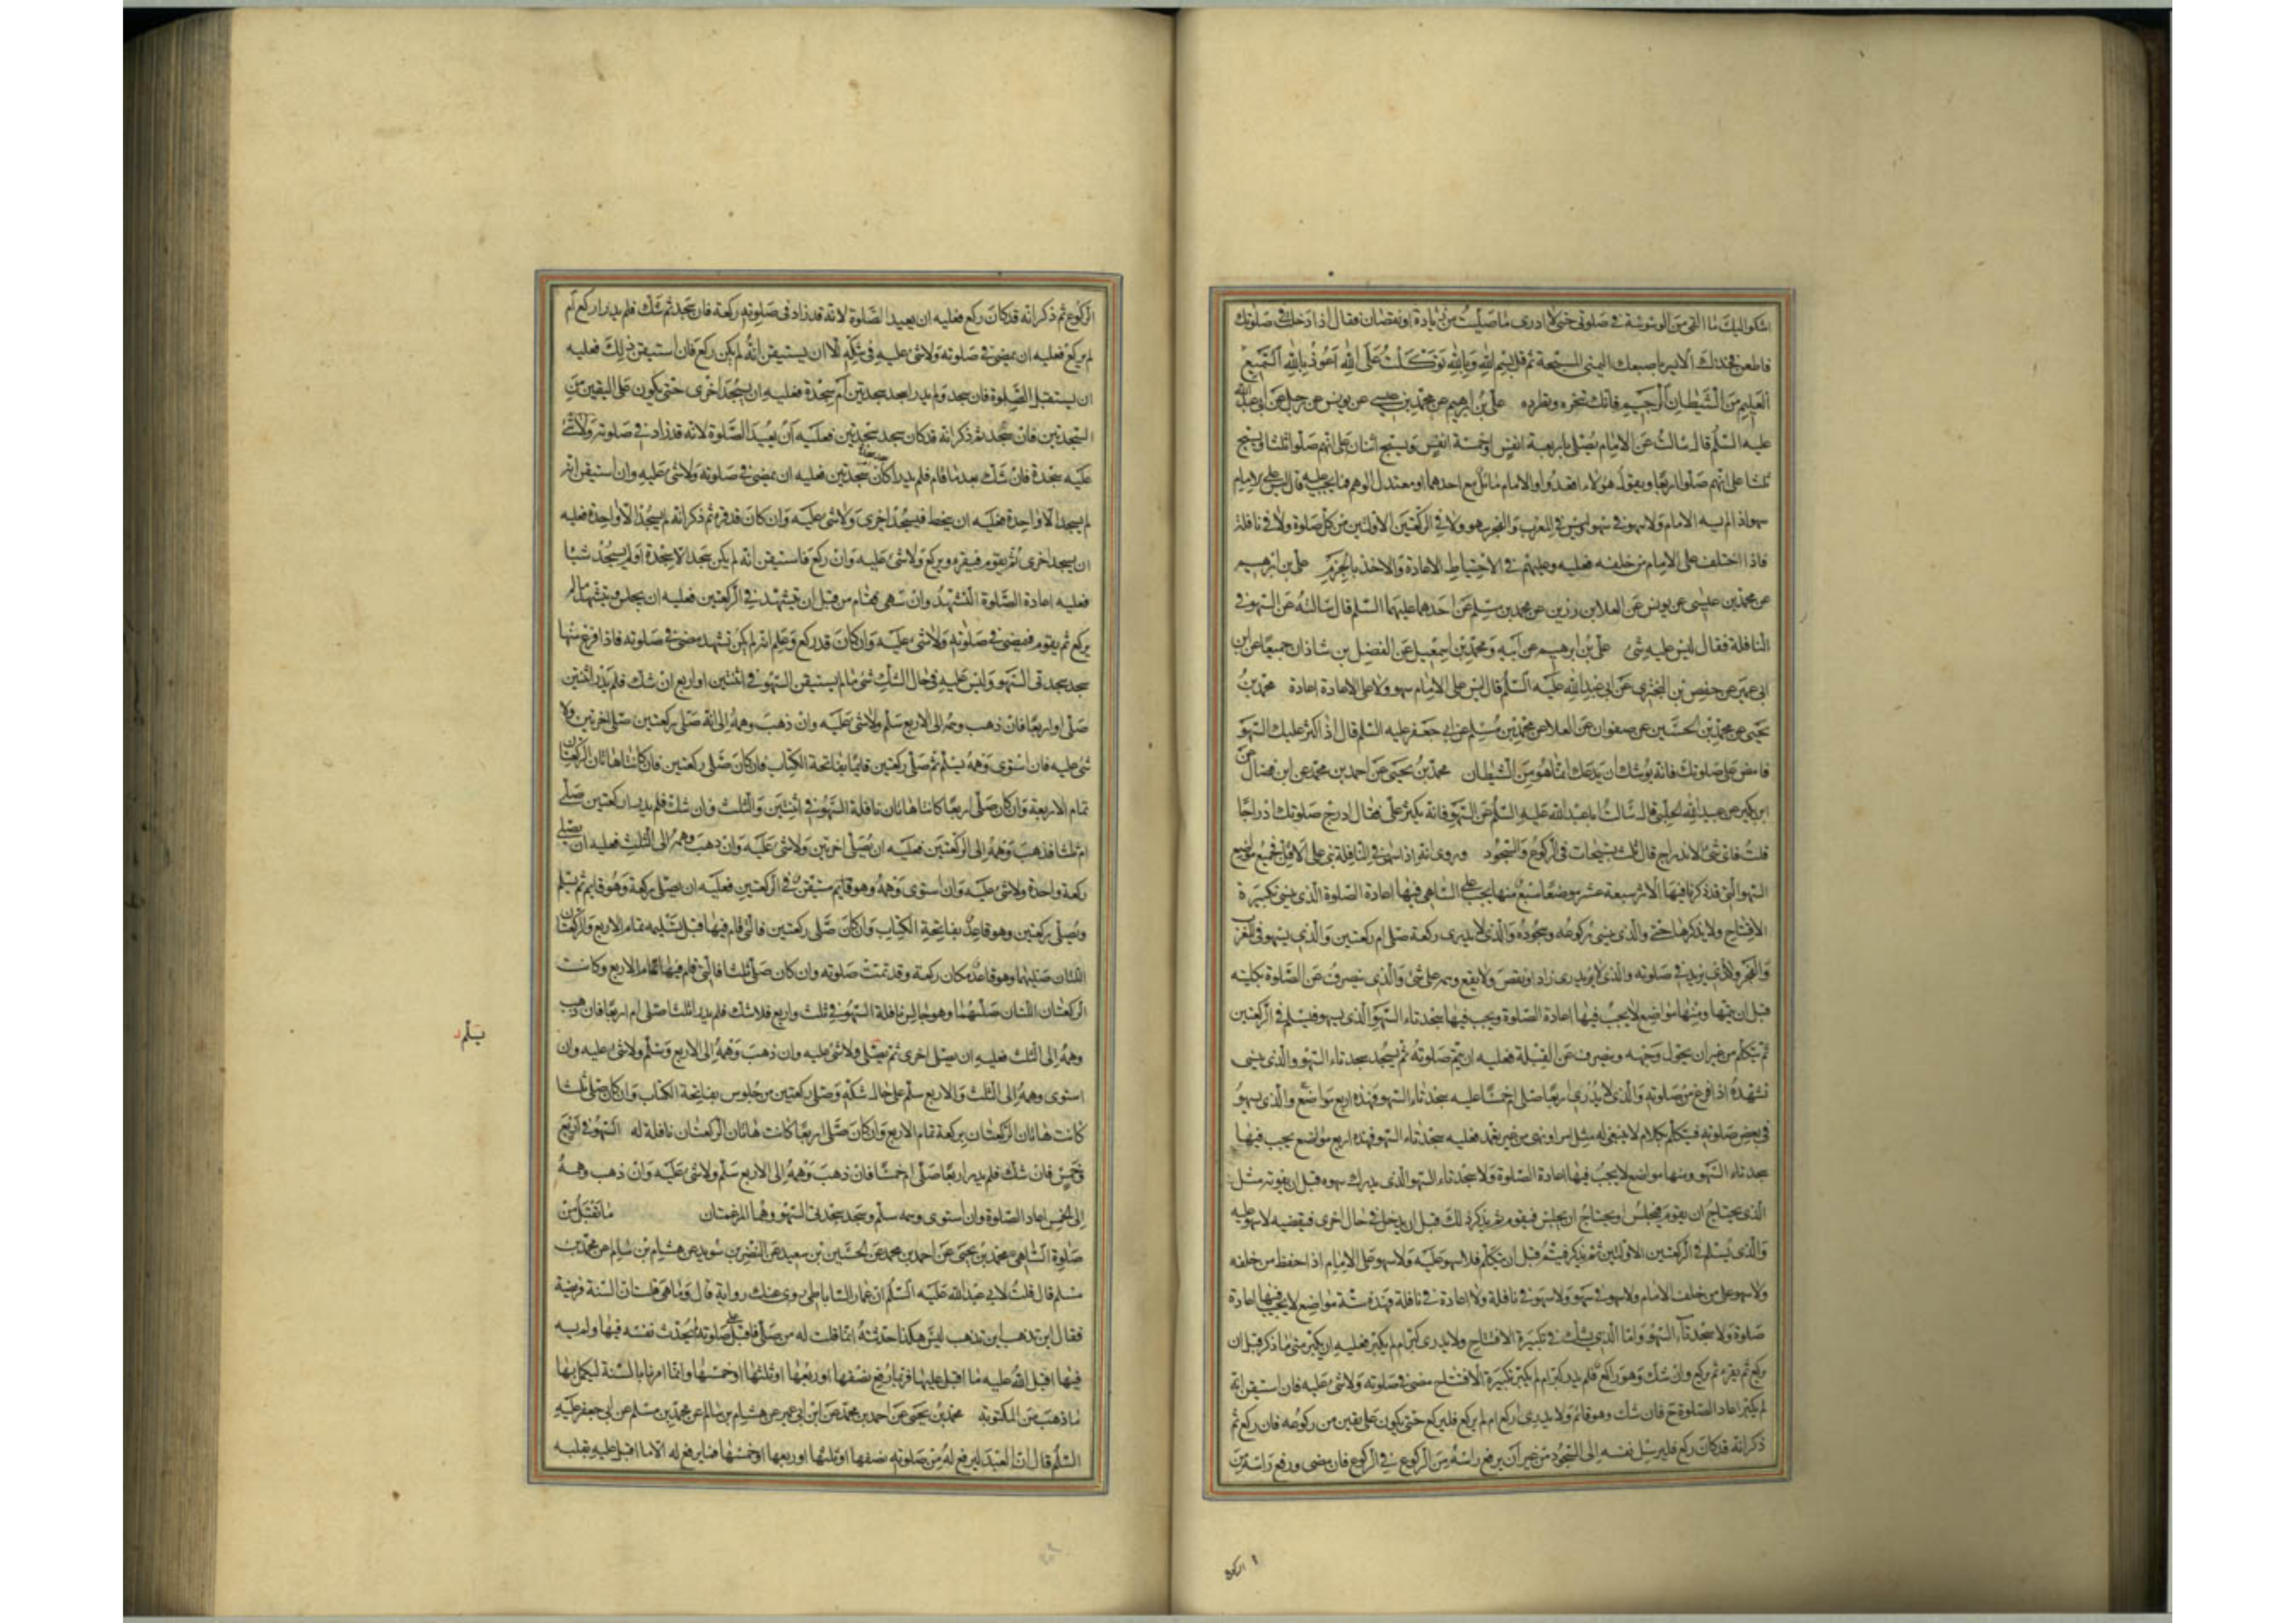 اشكو اليك ما القى من الوسوسة فى صلوتى حتى لا ادرى ما صليت من زيادة او نقصان فقال اذا دخلت فى صلوتك
فاطعن فخذك الايسر باصبعك اليمنى المسبحة ثم قل بسم الله وبالله توكلت على الله اعوذ بالله السميع
العليم من الشيطان الرجيم فانك تنحره وتطرده على بن ابرهيم عن محمد بن عيسى عن يونس عن رجل عن ابى عبد الله
عليه السلم قال سالت عن الامام يصلى باربعة انفس او خمسة انفس ويسبح اثنان على انهم صلوا ثلثا ويسبح
ثلثة على انهم صلوا اربعا ويقول هؤلاء قوموا ويقول هؤلاء اقعدوا والامام مائل مع احدهما او معتدل الوهم فما يجب عليه قال ليس على الامام
سهو اذا
الامام ولا سهو فى سهو وليس فى المغرب والفجر سهو ولا فى الركعتين الاولتين من كل صلوة ولا فى نافلة
فاذا اختلف على الامام من خلفه فعليه وعليهم فى الاحتياط الاعادة والاخذ بالجزم على بن ابرهيم
عن محمد بن عيسى عن يونس عن العلا بن رزين عن محمد بن مسلم عن احدهما عليهما السلم قال سالته عن السهو فى
النافلة فقال ليس عليه شئ على بن ابرهيم عن ابيه ومحمد بن اسمعيل عن الفضل بن شاذان جميعا عن ابن
ابى عمير عن حفص بن البخترى عن ابى عبد الله عليه السلم قال ليس على الامام سهو ولا على الاعادة اعادة محمد بن
يحيى عن محمد بن الحسين عن صفوان عن العلا عن محمد بن مسلم عن ابى جعفر عليه السلم قال اذا كثر عليك السهو
فامض على صلوتك فانه يوشك ان يدعك انما هو من الشيطان محمد بن يحيى عن احمد بن محمد عن ابن فضال عن
ابن بكير عن عبيد الله الحلبى قال سالت ابا عبد الله عليه السلم عن السهو فانه يكثر على فقال ادرج صلوتك ادراجا
قلت فاى شئ الادراج قال ثلث تسبيحات فى الركوع والسجود وروى انه اذا سهى فى النافلة بنى على الاقل فجميع مواضع
السهو التى قد ذكرنا فيها الاثر سبعة عشر موضعا سبعة منها يجب على الساهى فيها اعادة الصلوة الذى ينسى تكبيرة
الافتتاح ولا يذكرها حتى والذى ينسى ركوعه وسجوده والذى لا يدرى ركعة صلى ام ركعتين والذى يسهو فى المغرب
والفجر والذى يزيد فى صلوته والذى لا يدرى زاد او نقص ولا يقع وهمه على شئ والذى ينصرف عن الصلوة بكليته
قبل ان يتمها ومنها مواضع لا يجب فيها اعادة الصلوة ويجب فيها سجدتا السهو الذى يسهو فيسلم فى الركعتين
ثم يتكلم من غير ان يحول وجهه وينصرف عن القبلة فعليه ان يتم صلوته ثم يسجد سجدتا السهو والذى ينسى
تشهده اذا فرغ من صلوته والذى لا يدرى اربعا صلى ام خمسا عليه سجدتا السهو فهذه اربع مواضع والذى يسهو
فى بعض صلوته فيتكلم بكلام لا ينبغى له مثل امر او نهى من غير تعمد فعليه سجدتا السهو فهذه اربع مواضع يجب فيها
سجدتا السهو ومنها مواضع لا يجب فيها اعادة الصلوة ولا سجدتا السهو الذى يدرك سهوه قبل ان يفوته مثل
الذى يحتاج ان يقوم فيجلس او يحتاج ان يجلس فيقوم ثم يذكر ذلك قبل ان يدخل فى حال اخرى فيقضيه لا سهو عليه
والذى يسلم فى الركعتين الاولتين ثم يذكر فيتم قبل ان يتكلم فلا سهو عليه ولا سهو على الامام اذا حفظ من خلفه
ولا سهو على من خلف الامام ولا سهو فى سهو ولا سهو فى نافلة ولا اعادة فى نافلة فهذه ستة مواضع لا يجب فيها اعادة
صلوة ولا سجدتا السهو واما الذى يشك فى تكبيرة الافتتاح ولا يدرى كبر ام لم يكبر فعليه ان يكبر متى ما ذكر قبل ان
يركع ثم يقرء ثم يركع وان شك وهو راكع فلم يدر كبر ام لم يكبر تكبيرة الافتتاح مضى فى صلوته ولا شئ عليه فان استيقن انه
لم يكبر اعاد الصلوة ح فان شك وهو قائم ولا يدرى اركع ام لم يركع فليركع حتى يكون على يقين من ركوعه فان ركع ثم
ذكر انه قد كان ركع فليرسل نفسه الى السجود من غير ان يرفع راسه من الركوع فى الركوع فان مضى ورفع راسه من
الركوع ثم ذكر انه قد كان ركع فعليه ان يعيد الصلوة لانه قد زاد فى صلوته ركعة فان سجد ثم شك فلم يدر اركع ام
لم يركع فعليه ان يمضى فى صلوته ولا شئ عليه فى شكه الا ان يستيقن انه لم يكن ركع فان استيقن ذلك فعليه
ان يستقبل الصلوة فان سجد ولم يدر اسجد سجدتين ام سجدة فعليه ان يسجد اخرى حتى يكون على اليقين من
السجدتين فان سجد ثم ذكر انه قد كان سجد سجدتين فعليه ان يعيد الصلوة لانه قد زاد فى صلوته ولا شئ
عليه سجدة فان شك بعد ما قام فلم يدر اكان سجدتين فعليه ان يمضى فى صلوته ولا شئ عليه وان استيقن انه
لم يسجد الا واحدة فعليه ان ينحط فيسجد اخرى ولا شئ عليه وان كان قد قرء ثم ذكر انه لم يسجد الا واحدة فعليه
ان يسجد اخرى ثم يقوم فيقرء ويركع ولا شئ عليه وان ركع فاستيقن انه لم يكن سجد الا سجدة او لم يسجد شيئا
فعليه اعادة الصلوة التشهد وان سهى فقام من قبل ان يتشهد فى الركعتين فعليه ان يجلس ويتشهد ما لم
يركع ثم يقوم فيمضى فى صلوته ولا شئ عليه وان كان قد ركع وعلم انه لم يكن تشهد مضى فى صلوته فاذا فرغ منها
سجد سجدتى السهو وليس عليه فى حال الشك شئ ما لم يستيقن السهو فى اثنتين او اربع ان شك فلم يدر اثنتين
صلى او اربعا فان ذهب وهمه الى الاربع سلم ولا شئ عليه وان ذهب وهمه الى انه صلى ركعتين صلى اخرتين ولا
شئ عليه فان استوى وهمه يسلم ثم صلى ركعتين قائما بفاتحة الكتاب فان كان صلى ركعتين فان كانتا هاتان الركعتان
تمام الاربعة وان كان صلى اربعا كانتا هاتان نافلة السهو فى اثنتين والثلث وان شك فلم يدر ركعتين صلى
ام ثلثا فذهب وهمه الى الركعتين فعليه ان يصلى اخرتين ولا شئ عليه وان ذهب وهمه الى الثلث فعليه ان يصلى
ركعة واحدة ولا شئ عليه وان استوى وهمه وهو قايم مستيقن فى الركعتين فعليه ان يصلى ركعة وهو قايم ثم يسلم
ويصلى ركعتين وهو قاعد بفاتحة الكتاب وان كان صلى ركعتين فالتى قام فيها قبل تسليمه تمام الاربع والركعتان
اللتان صليهما وهو قاعد مكان ركعة وقد تمت صلوته وان كان صلى ثلثا فالتى قام فيها تمام الاربع وكانت
الركعتان اللتان صلاهما وهو جالس نافلة السهو فى ثلث واربع فلا شك فلم يدر اثلثا صلى ام اربعا فان ذهب
وهمه الى الثلث فعليه ان يصلى اخرى ثم يصلى ولا شئ عليه وان ذهب وهمه الى الاربع وسلم ولا شئ عليه وان
يسلم
استوى وهمه الى الثلث والاربع سلم على حال شكه وصلى ركعتين من جلوس بفاتحة الكتاب وان كان صلى ثلثا
كانت هاتان الركعتان بركعة تمام الاربع وان كان صلى اربعا كانت هاتان الركعتان نافلة له السهو فى اربع
وخمس فان شك فلم يدر اربعا صلى ام خمسا فان ذهب وهمه الى الاربع سلم ولا شئ عليه وان ذهب وهمه
الى الخمس اعاد الصلوة وان استوى وهمه سلم وسجد سجدتى السهو وهما المرغمتان ما تقبل من
صلوة الساهى محمد بن يحيى عن احمد بن محمد عن الحسين بن سعيد عن النضر بن سويد عن هشام بن سالم عن محمد بن
مسلم قال قلت لابى عبد الله عليه السلم ان عمار الساباطى روى عنك رواية قال وما هى قلت ان السنة فريضة
فقال اين تذهب اين تذهب ليس هكذا حدثته انما قلت له من صلى فاقبل على صلوته لم يحدث نفسه فيها ولم يسه
فيها اقبل الله عليه ما اقبل عليها فربما رفع نصفها او ربعها او ثلثها او خمسها وانما امرنا بالسنة ليكمل بها
ما ذهب من المكتوبة محمد بن يحيى عن احمد بن محمد عن ابن ابى عمير عن هشام بن سالم عن محمد بن مسلم عن ابى جعفر عليه
السلم قال ان العبد ليرفع له من صلوته نصفها او ثلثها او ربعها او خمسها فما يرفع له الا ما اقبل عليه بقلبه